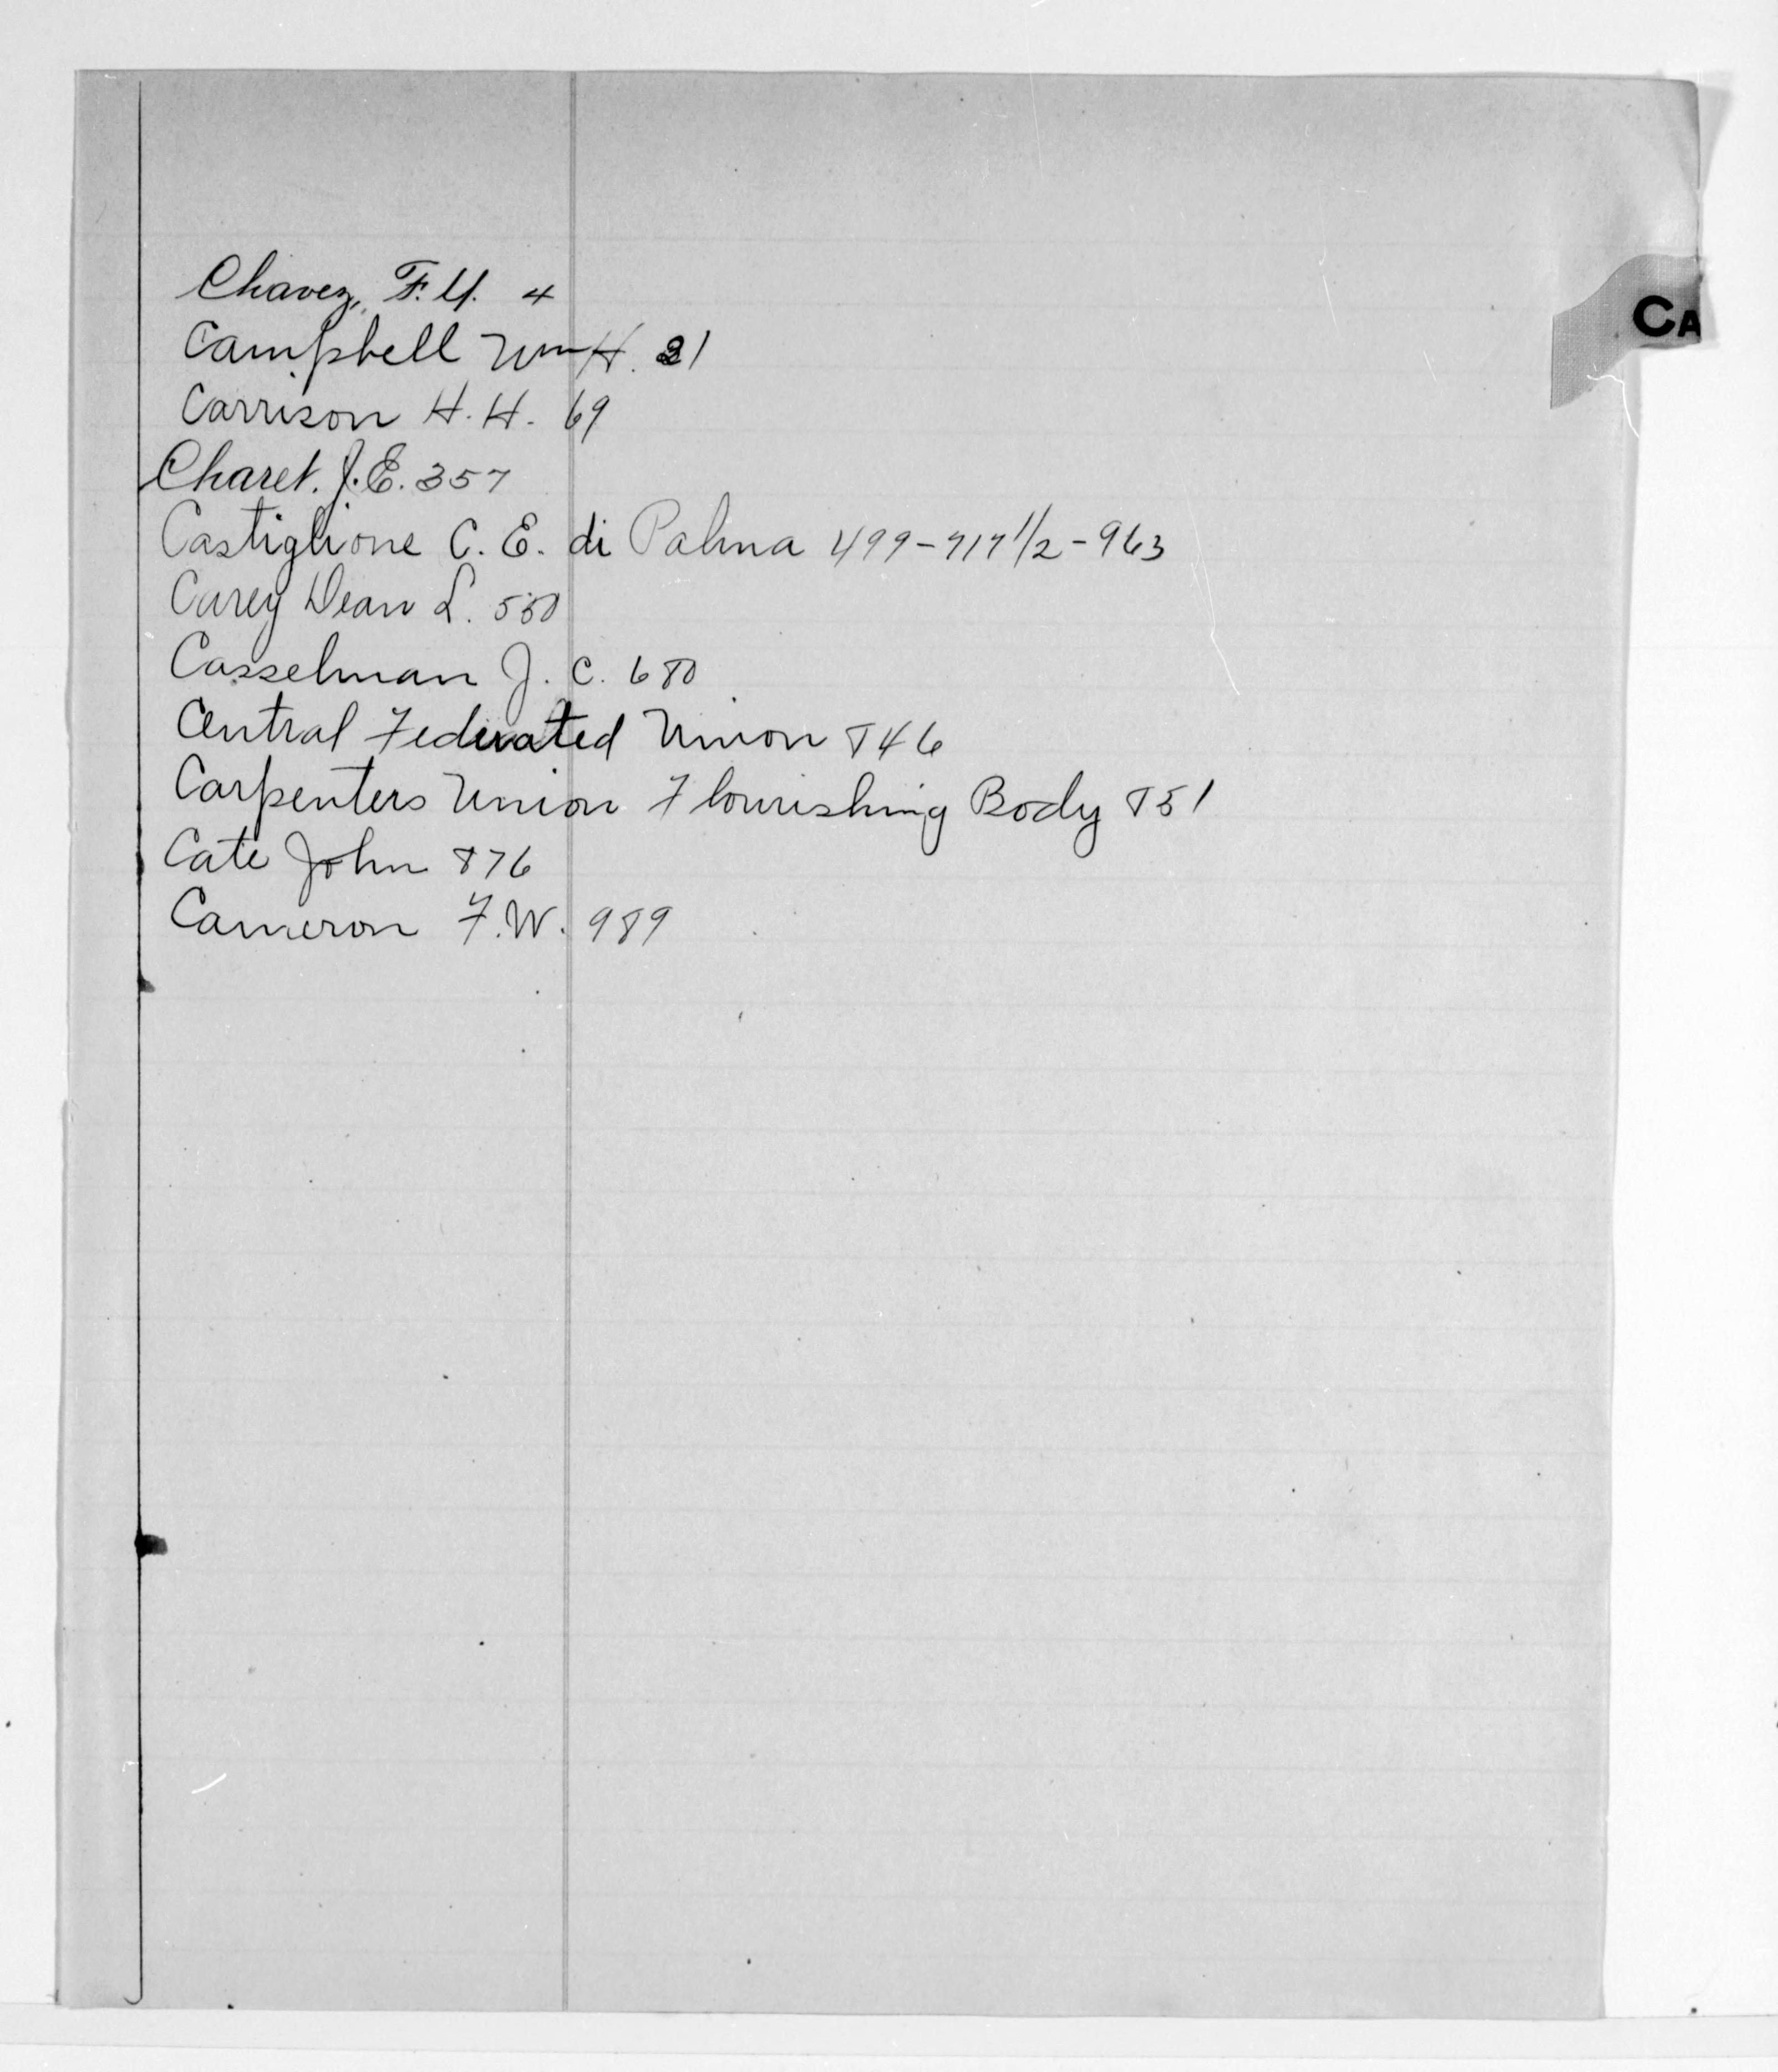 CA
Chavez, F. Y. 4
Campbell Wm H. 21
Carrison H. H. 69
Charet. J. E. 357
Castiglione C. E. di Palma 499-717 1/2-963
Carey Dean L. 550
Casselman J. C. 680
Central Federated Union 846
Carpenters Union Flourishing Body 851
Cate John 876
Cameron F. W. 989